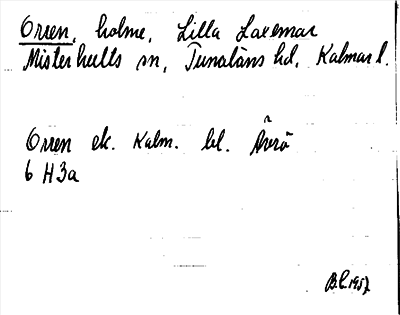 Orren, holme, Lilla Laxemar
Misterhults sn, Tunaläns hd, Kalmar l.
Orren ek. Kalm. bl. Ävrö
6 H3a
B.L. 1957